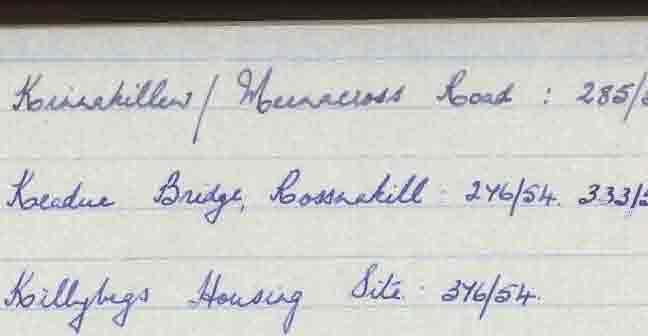 Kinnakillew / Meenacross Road : 285/
Keadue Bridge, Rossnakill : 246/54. 333/5
Killybegs Housing Site : 346/54.